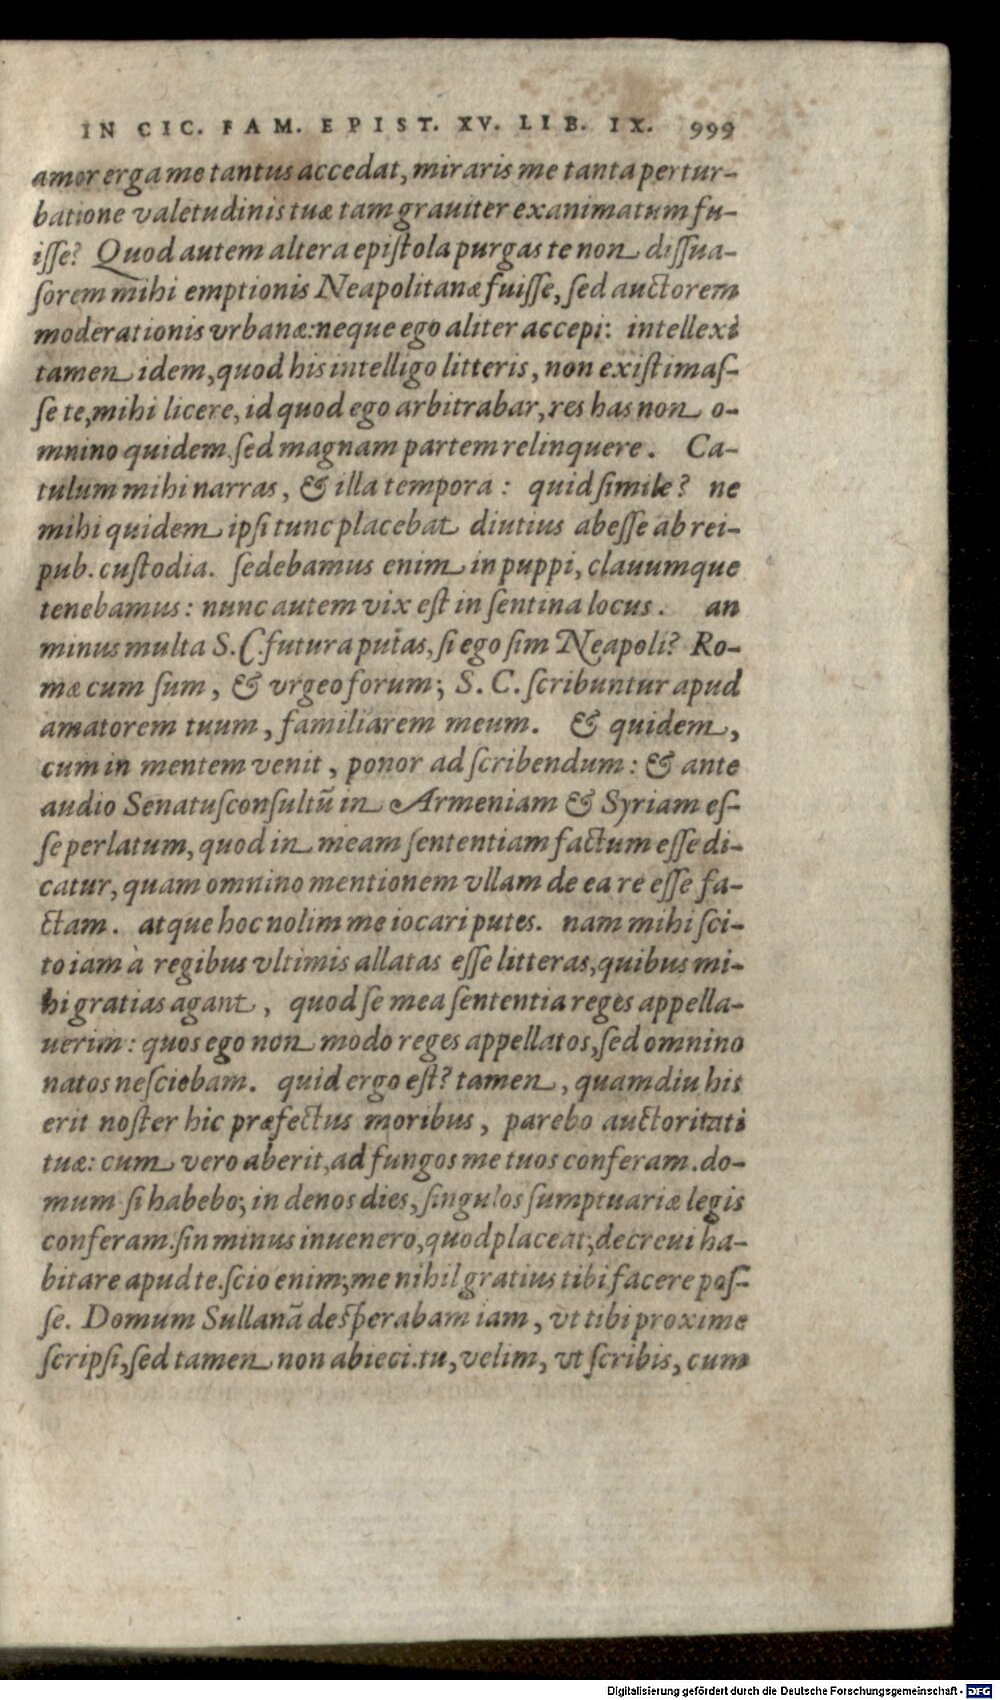 IN CIC. FAM. EPIST. XV. LIB. IX. 999
amor erga me tantus accedat, miraris me tanta pertur-
batione valetudinis tuæ tam grauiter exanimatum fu-
iſſe? Quod autem altera epiſtola purgas te non diſſua-
ſorem mihi emptionis Neapolitanæ fuiſſe, ſed auctorem
moderationis vrbanæ: neque ego aliter accepi: intellexi
tamen idem, quod his intelligo litteris, non exiſtimaſ-
ſe te, mihi licere, id quod ego arbitrabar, res has non o-
mnino quidem, ſed magnam partem relinquere. Ca-
tulum mihi narras, & illa tempora: quid ſimile? ne
mihi quidem ipſi tunc placebat diutius abeſſe ab rei-
pub. cuſtodia. ſedebamus enim in puppi, clauumque
tenebamus: nunc autem vix eſt in ſentina locus. an
minus multa S. C. futura putas, ſi ego ſim Neapoli? Ro-
mæ cum ſum, & vrgeo forum; S. C. ſcribuntur apud
amatorem tuum, familiarem meum. & quidem,
cum in mentem venit, ponor ad ſcribendum: & ante
audio Senatuſconſultū in Armeniam & Syriam eſ-
ſe perlatum, quod in meam ſententiam factum eſſe di-
catur, quam omnino mentionem vllam de ea re eſſe fa-
ctam. atque hoc nolim me iocari putes. nam mihi ſci-
to iam à regibus vltimis allatas eſſe litteras, quibus mi-
hi gratias agant, quod ſe mea ſententia reges appella-
uerim: quos ego non modo reges appellatos, ſed omnino
natos neſciebam. quid ergo eſt? tamen, quamdiu his
erit noſter hic præfectus moribus, parebo auctoritati
tuæ: cum vero aberit, ad fungos me tuos conferam. do-
mum ſi habebo; in denos dies, ſingulos ſumptuariæ legis
conferam. ſin minus inuenero, quod placeat; decreui ha-
bitare apud te. ſcio enim; me nihil gratius tibi facere poſ-
ſe. Domum Sullanā deſperabam iam, vt tibi proxime
ſcripſi, ſed tamen non abieci. tu, velim, vt ſcribis, cum
Digitalisierung gefördert durch die Deutsche Forschungsgemeinschaft - DFG